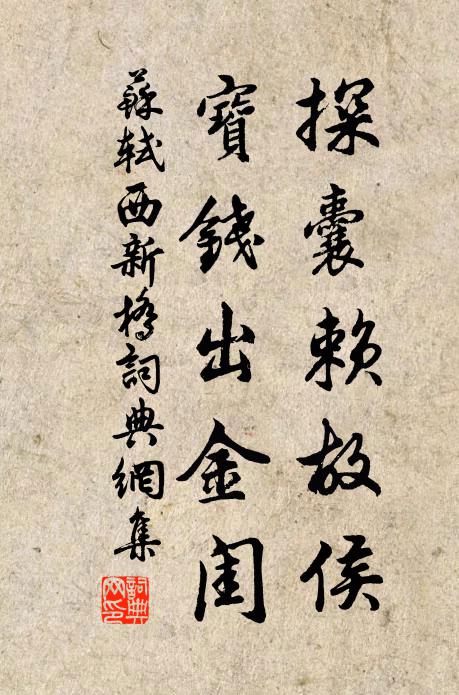 探囊賴故侯
寶錢出金閨
蘇軾西新橋詞典網集
詞典
网印